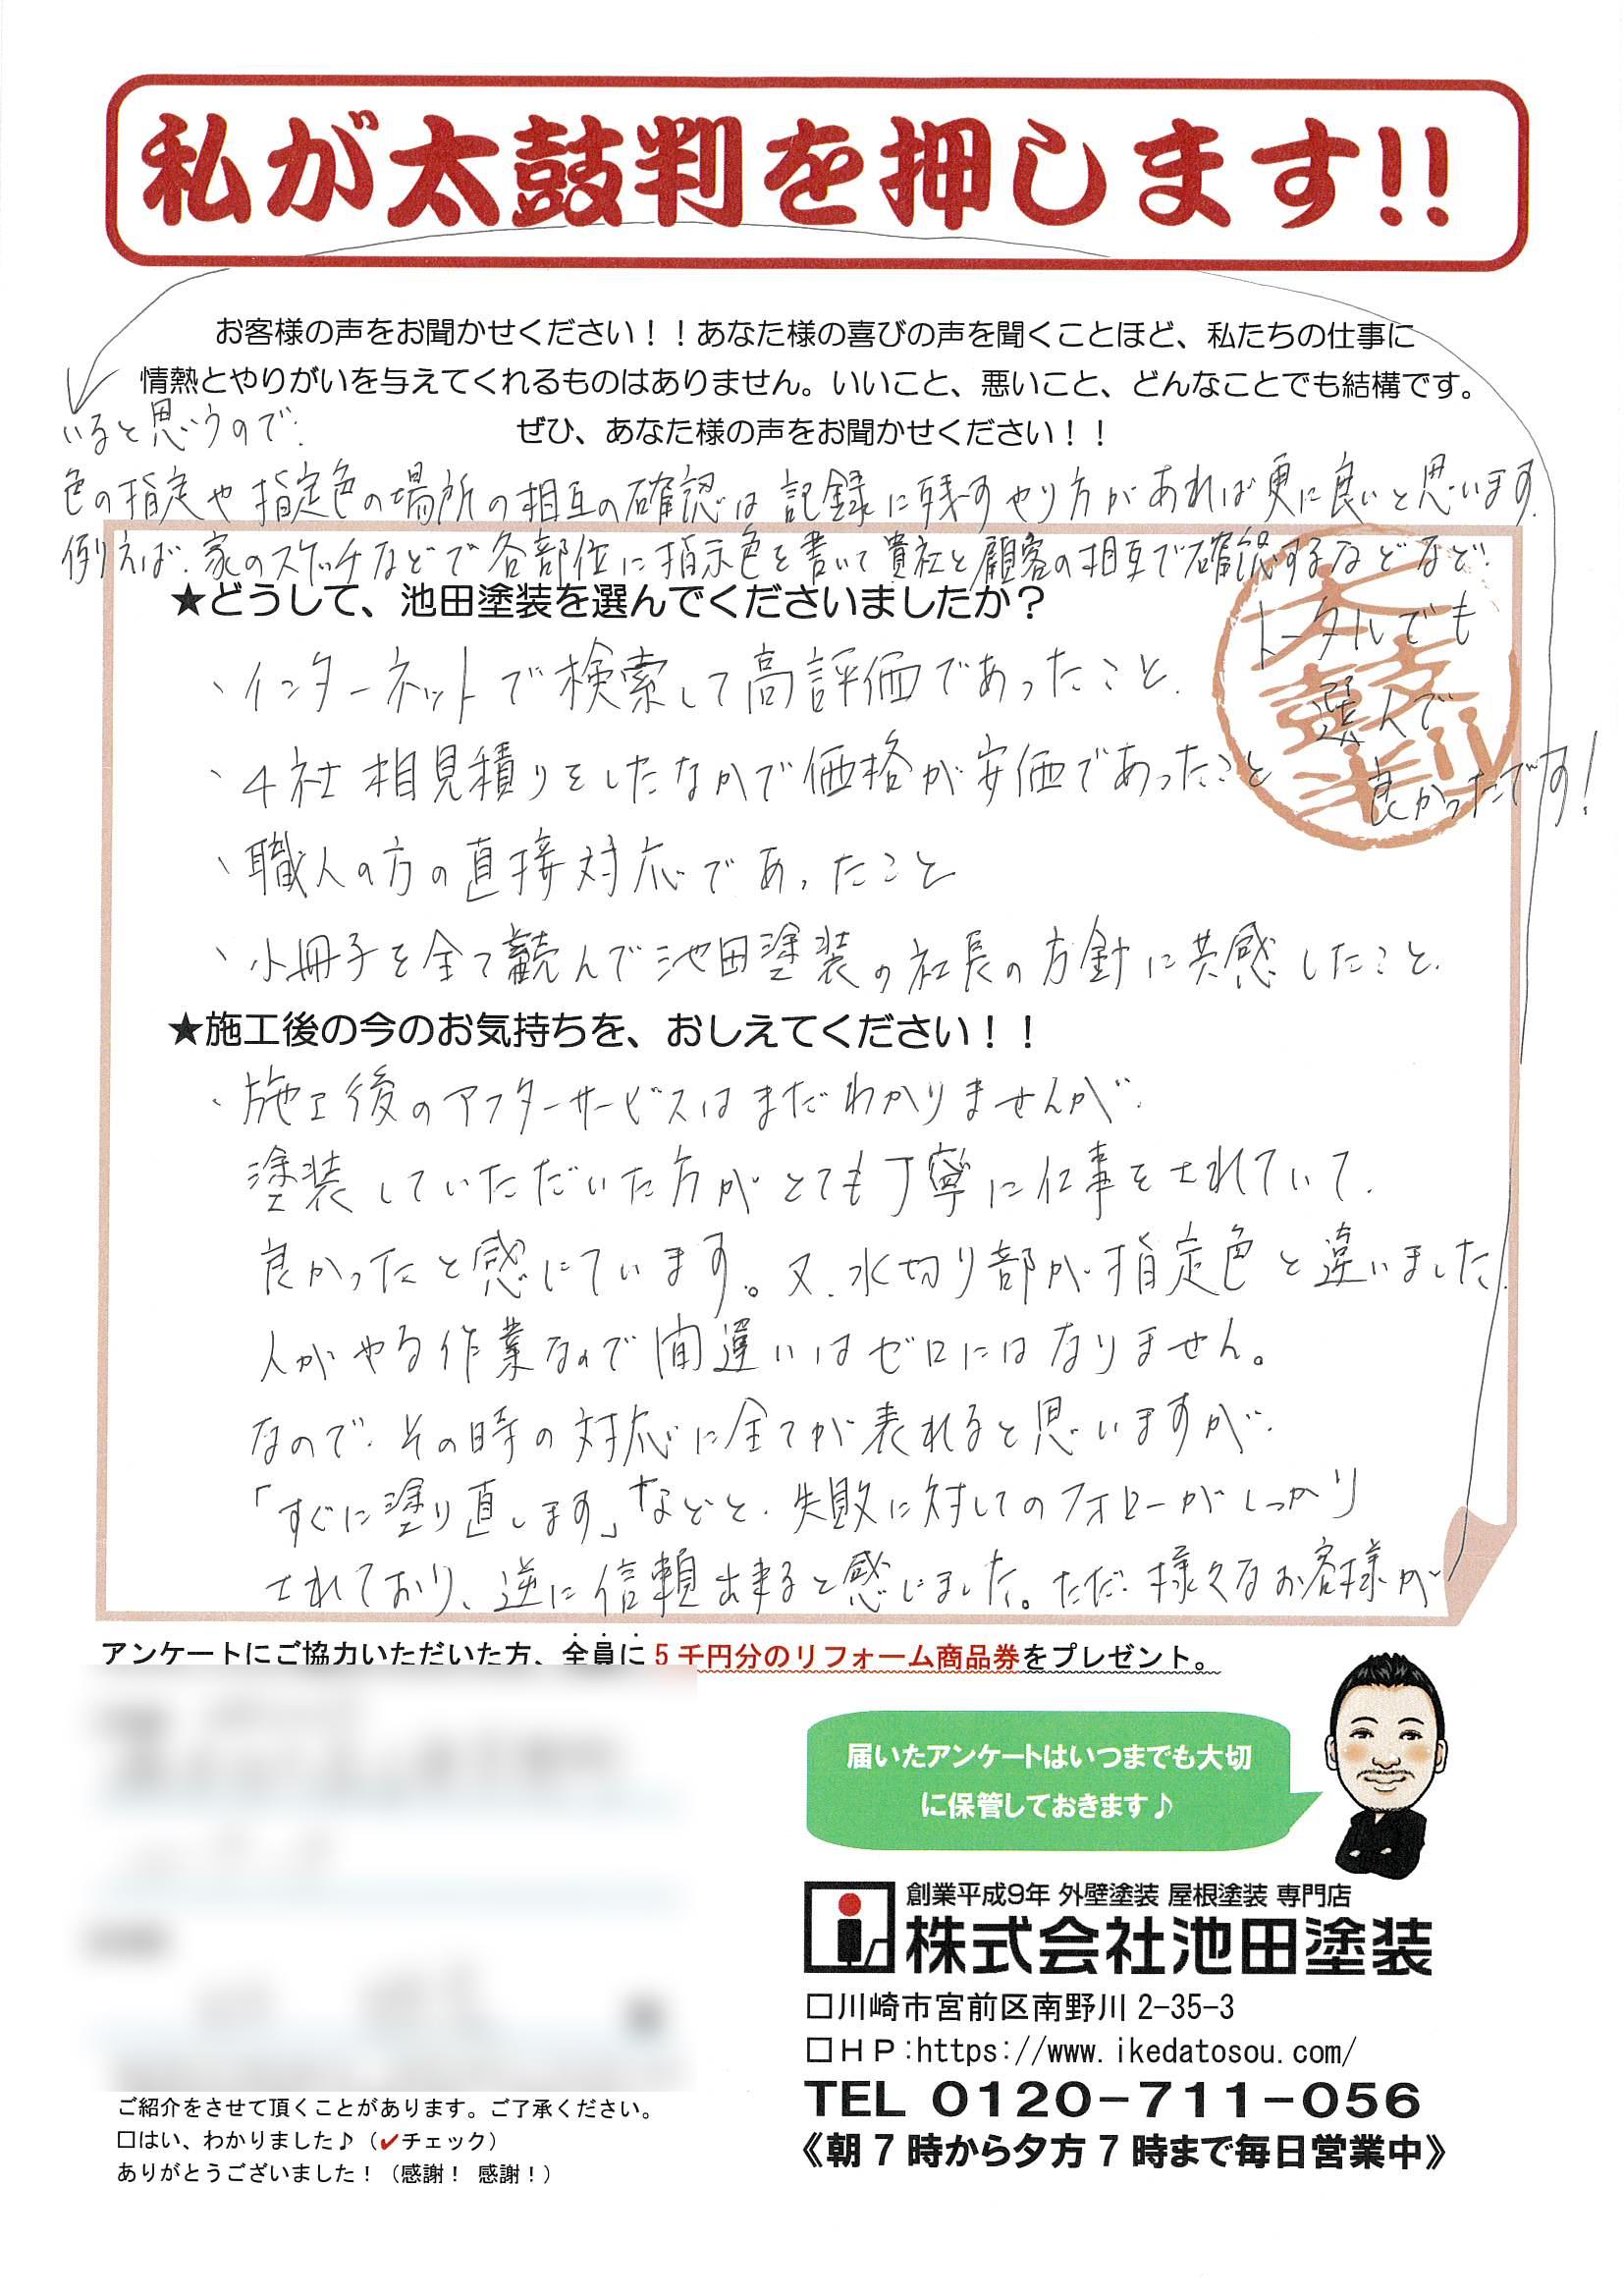 私が太鼓判を押します!!
お客様の声をお聞かせください！！あなた様の喜びの声を聞くことほど、私たちの仕事に
情熱とやりがいを与えてくれるものはありません。いいこと、悪いこと、どんなことでも結構です。
ぜひ、あなた様の声をお聞かせください！！
★どうして、池田塗装を選んでくださいましたか？
、インターネットで検索して高評価であったこと.
、4社相見積りをしたなかで価格が安価であったこと
、職人の方の直接対応であったこと
、小冊子を全て読んで池田塗装の社長の方針に共感したこと.
★施工後の今のお気持ちを、おしえてください！！
、施工後のアフターサービスはまだわかりませんが.
塗装していただいた方がとても丁寧に仕事をされていて.
良かったと感じています。又.水切り部が指定色と違いました.
人がやる作業なので間違いはゼロにはなりません。
なので.その時の対応に全てが表れると思いますが.
「すぐに塗り直します」などと.失敗に対してのフォローがしっかり
されており、逆に信頼出来ると感じました。ただ.様々なお客様が
いると思うので.
色の指定や指定色の場所の相互の確認は記録に残すやり方があれば更に良いと思います.
例えば.家のスケッチなどで各部位に指示色を書いて貴社と顧客の相互で確認するなどなど.
トータルでも
選んで
良かったです！
太鼓判
アンケートにご協力いただいた方、全員に５千円分のリフォーム商品券をプレゼント。
届いたアンケートはいつまでも大切
に保管しておきます♪
創業平成9年 外壁塗装 屋根塗装 専門店
株式会社池田塗装
□川崎市宮前区南野川2-35-3
□ＨＰ:https://www.ikedatosou.com/
TEL 0120-711-056
《朝７時から夕方７時まで毎日営業中》
ご紹介をさせて頂くことがあります。ご了承ください。
□はい、わかりました♪（✔チェック）
ありがとうございました！（感謝！ 感謝！）